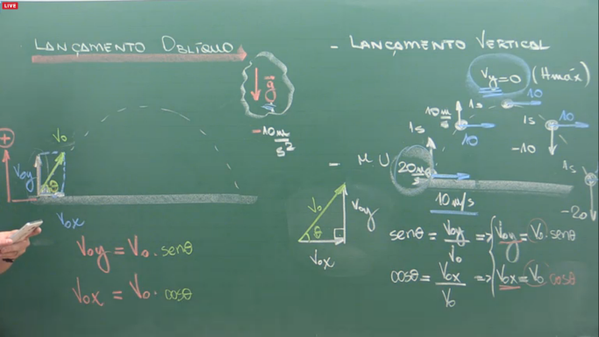 LIVE
LANÇAMENTO OBLÍQUO
g
-10 m/s²
+
V0
V0y
θ
V0x
V0y = V0 . senθ
V0x = V0 . cosθ
- LANÇAMENTO VERTICAL
Vy = 0 (Hmáx)
10
1s
10 m/s
10
1s
10
-10
1s
- MU
20 m/s
10 m/s
1s
-20
V0
V0y
θ
V0x
senθ = V0y/V0 => V0y = V0 . senθ
cosθ = V0x/V0 => V0x = V0 . cosθ